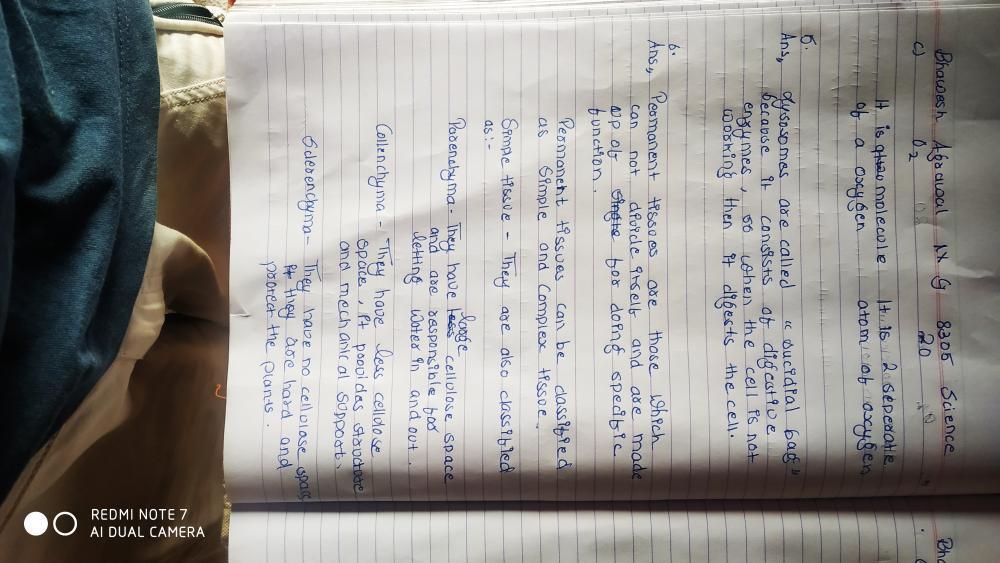 Bhavesh Agrawal IX G 8305 Science
c) O2 2O
It is molecule It is 2 seperate
of a oxygen atom of oxygen
5.
Ans, Lyssomes are called "suicidial bags"
because it consists of digestive
enzymes, so when the cell is not
working then it digests the cell.
6.
Ans, Permanent tissues are those which
can not divide itself and are made
up of for doing specific
function.
Permanent tissues can be classified
as Simple and Complex tissue.
Simple tissue - They are also classified
as:-
Parenchyma - They have large cellulose space
and are responsible for
letting water in and out.
Collenchyma - They have less cellulose
space, it provides structure
and mechanical support.
Sclerenchyma - They have no cellulose space,
they are hard and
protect the plants.
Bha
REDMI NOTE 7
AI DUAL CAMERA